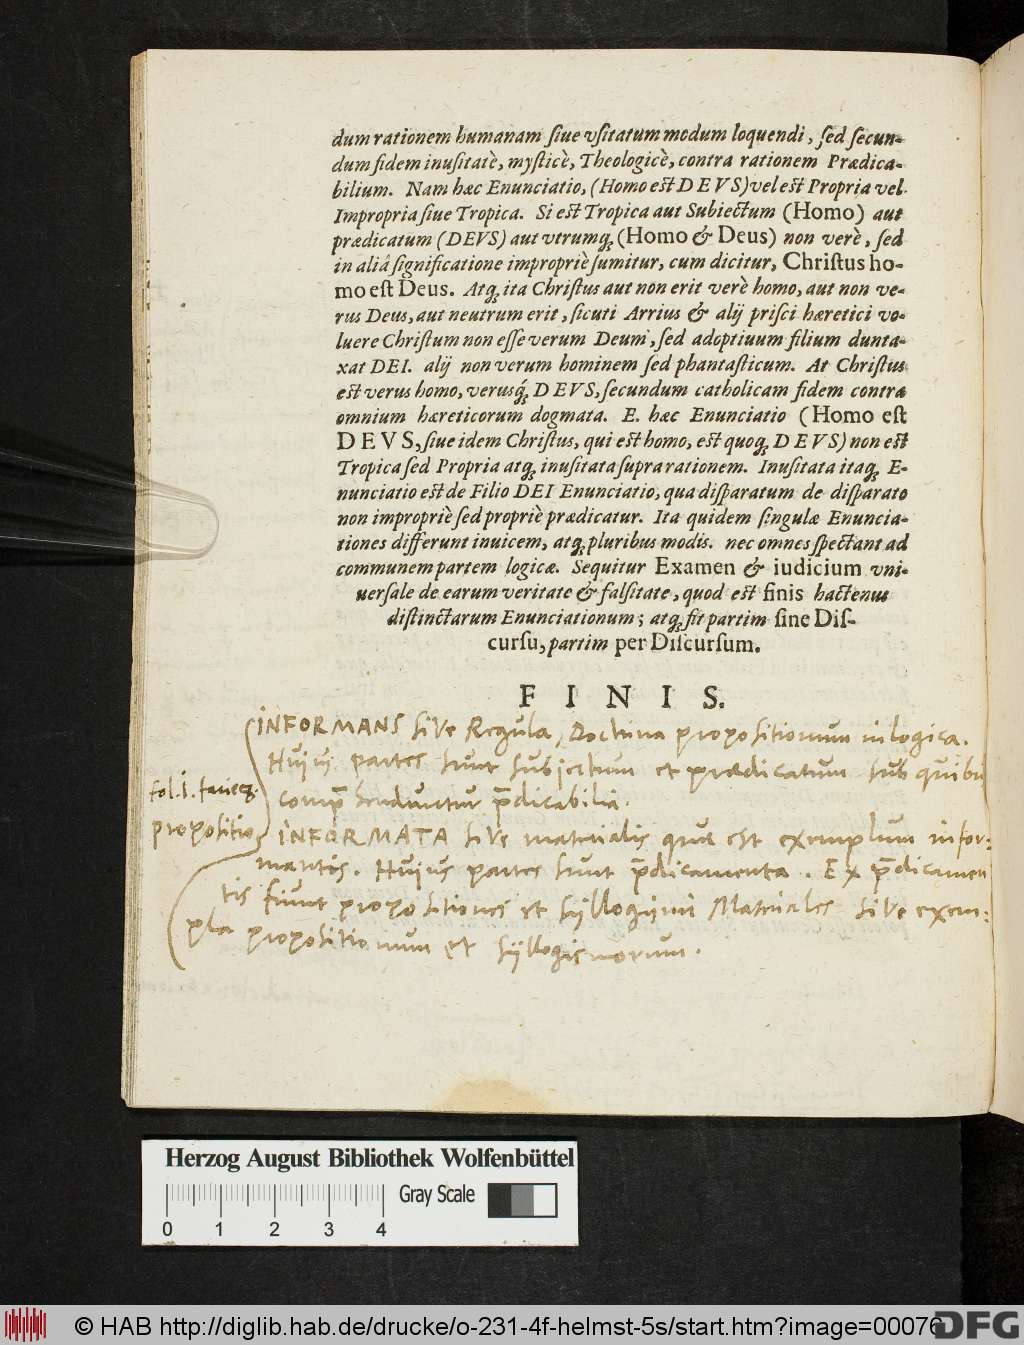 dum rationem humanam ſiue vſitatum modum loquendi, ſed ſecun-
dum fidem inuſitatè, myſticè, Theologicè, contra rationem Prædica-
bilium. Nam hæc Enunciatio, (Homo eſt DEVS) vel eſt Propria vel
Impropria ſiue Tropica. Si eſt Tropica aut Subiectum (Homo) aut
prædicatum (DEVS) aut vtrumq́ꝫ (Homo & Deus) non verè, ſed
in aliâ ſignificatione impropriè ſumitur, cum dicitur, Chriſtus ho-
mo eſt Deus. Atqꝫ ita Chriſtus aut non erit verè homo, aut non ve-
rus Deus, aut neutrum erit, ſicuti Arrius & alij priſci hæretici vo-
luere Chriſtum non eſſe verum Deum, ſed adoptiuum filium dunta-
xat DEI. alij non verum hominem ſed phantaſticum. At Chriſtus
eſt verus homo, verusq́ꝫ DEVS, ſecundum catholicam fidem contra
omnium hæreticorum dogmata. E. hæc Enunciatio (Homo eſt
DEVS, ſiue idem Chriſtus, qui eſt homo, eſt quoqꝫ DEVS) non eſt
Tropica ſed Propria atqꝫ inuſitata ſupra rationem. Inuſitata itaqꝫ E-
nunciatio eſt de Filio DEI Enunciatio, qua diſparatum de diſparato
non impropriè ſed propriè prædicatur. Ita quidem ſingulæ Enuncia-
tiones differunt inuicem, atqꝫ pluribus modis. nec omnes ſpectant ad
communem partem logicæ. Sequitur Examen & iudicium vni-
uerſale de earum veritate & falſitate, quod eſt finis hactenus
diſtinctarum Enunciationum; atqꝫ fit partim ſine Diſ-
curſu, partim per Diſcurſum.
FINIS.
INFORMANS sive Regula, Doctrina propositionum in logica.
Huius partes sunt subiectum et prædicatum sub quibus
fol. 1. facie 2.
comp̄henduntur p̄dicabilia.
propositio
INFORMATA sive materialis quæ est exemplum infor:
mantis. Huius partes sunt p̄dicamenta. Ex p̄dicamen
tis fiunt propositiones et syllogismi Materiales sive exem:
pla propositionum et syllogismorum.
Herzog August Bibliothek Wolfenbüttel
Gray Scale
0 1 2 3 4
© HAB http://diglib.hab.de/drucke/o-231-4f-helmst-5s/start.htm?image=00076
DFG